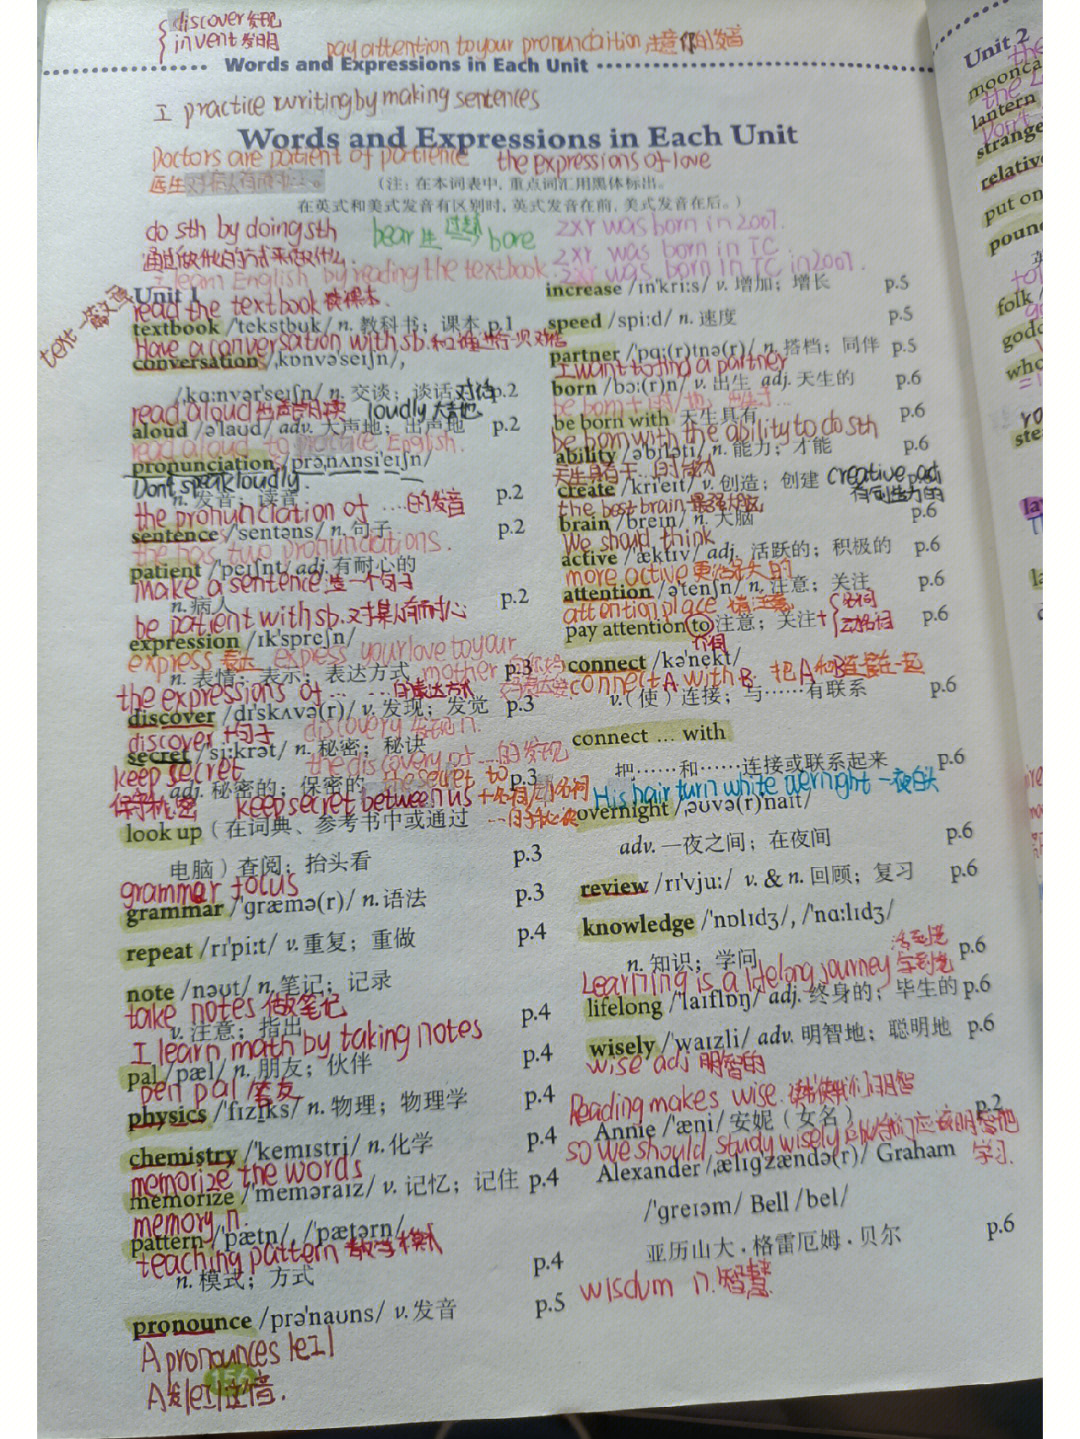 discover 发现
invent 发明
pay attention to your pronunciation 注意你的发音
Words and Expressions in Each Unit
I practice writing by making sentences
Words and Expressions in Each Unit
Doctors are patient of
the expressions of love
医生
(注: 在本词表中, 重点词汇用黑体标出。
在英式和美式发音有区别时, 英式发音在前, 美式发音在后。)
do sth by doing sth
bear 生 过去 bore
zxr was born in 2007.
zxr was born in TC
I learn English by reading the textbook.
zxr was born in TC in 2007.
Unit 1
read the textbook 读课本.
textbook /'tekstbuk/ n. 教科书; 课本 p.1
Have a conversation with sb.
conversation /ˌkɒnvə'seɪʃn/,
/ˌkɑːnvər'seɪʃn/ n. 交谈; 谈话 对话 p.2
read aloud
loudly 大声地
aloud /ə'laʊd/ adv. 大声地; 出声地 p.2
read aloud to practice English.
pronunciation /prəˌnʌnsi'eɪʃn/
Don't speak loudly.
n. 发音; 读音 p.2
the pronunciation of ……的发音
sentence /'sentəns/ n. 句子 p.2
the has two pronunciations.
patient /'peɪʃnt/ adj. 有耐心的
make a sentence 造一个句子
n. 病人 p.2
be patient with sb. 对某人有耐心
expression /ɪk'spreʃn/
express 表示 express your love to your mother
n. 表情; 表示; 表达方式 p.3
the expressions of …… ……的表达方式
discover /dɪ'skʌvə(r)/ v. 发现; 发觉 p.3
discover + 句子
discovery 发现 n.
secret /'siːkrət/ n. 秘密; 秘诀
the discovery of …的发现
keep secret
adj. 秘密的; 保密的 p.3
the secret to
保守秘密
keep secret between us
+ 名词/动名词
look up (在词典、参考书中或通过
电脑) 查阅; 抬头看 p.3
grammar focus
grammar /'græmə(r)/ n. 语法 p.3
repeat /rɪ'piːt/ v. 重复; 重做 p.4
note /nəʊt/ n. 笔记; 记录
take notes 做笔记
v. 注意; 指出 p.4
I learn math by taking notes
pal /pæl/ n. 朋友; 伙伴 p.4
pen pal 笔友
physics /'fɪzɪks/ n. 物理; 物理学 p.4
chemistry /'kemɪstri/ n. 化学 p.4
memorize the words
memorize /'meməraɪz/ v. 记忆; 记住 p.4
memory n.
pattern /'pætn/, /'pætərn/
teaching pattern 教学模式
n. 模式; 方式 p.4
pronounce /prə'naʊns/ v. 发音 p.5
A pronounces /eɪ/
156
A发/eɪ/这个音.
increase /ɪn'kriːs/ v. 增加; 增长 p.5
speed /spiːd/ n. 速度 p.5
partner /'pɑː(r)tnə(r)/ n. 搭档; 同伴 p.5
I want to find a partner
born /bɔː(r)n/ v. 出生 adj. 天生的 p.6
be born with 天生具有 p.6
be born with the ability to do sth
ability /ə'bɪləti/ n. 能力; 才能 p.6
天生具有干…的能力
create /kri'eɪt/ v. 创造; 创建
creative adj.
有创造力的
the best brain 最强大脑
p.6
brain /breɪn/ n. 大脑
We should think
active /'æktɪv/ adj. 活跃的; 积极的 p.6
more active
attention /ə'tenʃn/ n. 注意; 关注 p.6
attention place 请注意
pay attention to 注意; 关注 p.6
名词
动名词
介词
connect /kə'nekt/
connect A with B. 把A和B连接在一起
v. (使) 连接; 与……有联系 p.6
connect … with
把……和……连接或联系起来 p.6
His hair turn white overnight 一夜白头
overnight /ˌəʊvə(r)'naɪt/
adv. 一夜之间; 在夜间 p.6
review /rɪ'vjuː/ v. & n. 回顾; 复习 p.6
knowledge /'nɒlɪdʒ/, /'nɑːlɪdʒ/
活到老
n. 知识; 学问 p.6
Learning is a lifelong journey 学到老
lifelong /'laɪflɒŋ/ adj. 终身的; 毕生的 p.6
wisely /'waɪzli/ adv. 明智地; 聪明地 p.6
wise adj 明智的
Reading makes wise. 读书使我们明智
Annie /'æni/ 安妮 (女名) p.2
so we should study wisely 所以我们应该明智地
学习.
Alexander /ˌælɪgzændə(r)/ Graham
/'greɪəm/ Bell /bel/
亚历山大·格雷厄姆·贝尔 p.6
wisdum n. 智慧
Unit 2
lantern
strange
relative
put on
pound
folk